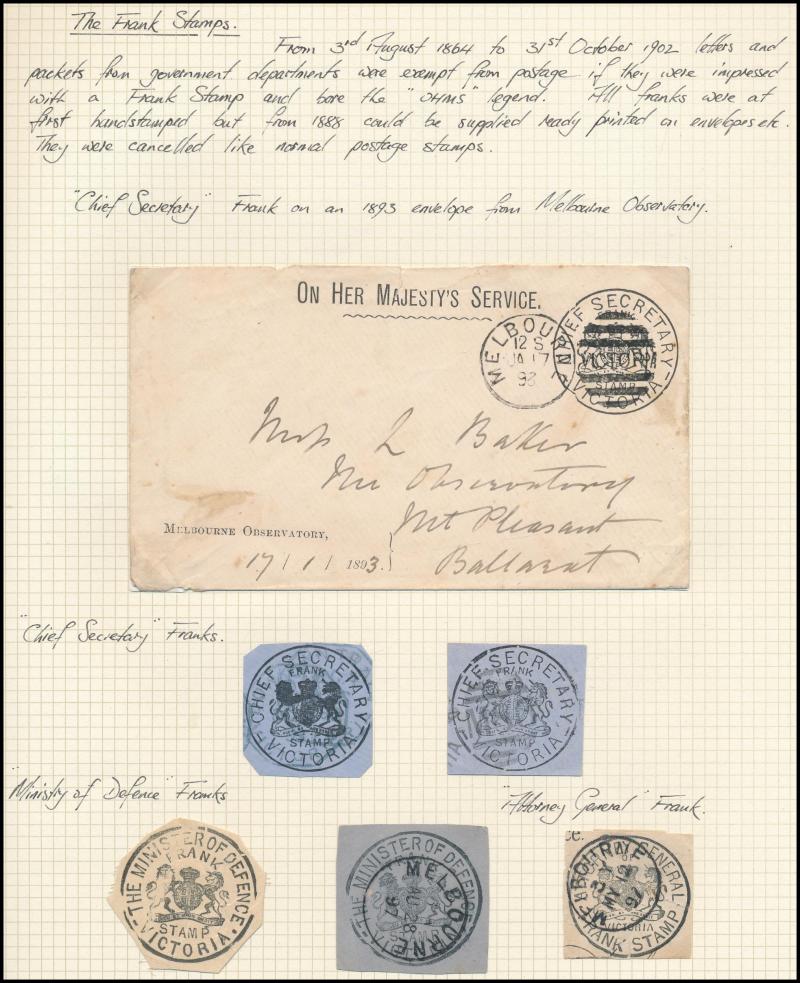 The Frank Stamps.
From 3rd August 1864 to 31st October 1902 letters and
packets from government departments were exempt from postage if they were impressed
with a Frank Stamp and bore the "OHMS" legend. All franks were at
first handstamped but from 1888 could be supplied ready printed on envelopes etc.
They were cancelled like normal postage stamps.
"Chief Secretary" Frank on an 1893 envelope from Melbourne Observatory.
ON HER MAJESTY'S SERVICE.
MELBOURNE
12 S
JA 17
93
CHIEF SECRETARY
FRANK
VICTORIA
STAMP
VICTORIA
L Baker
Observatory
Mt Pleasant
Ballarat
MELBOURNE OBSERVATORY,
17/1/1893.
"Chief Secretary" Franks.
CHIEF SECRETARY
FRANK
STAMP
VICTORIA
CHIEF SECRETARY
FRANK
STAMP
VICTORIA
"Ministry of Defence" Franks
"Attorney General" Frank.
THE MINISTER OF DEFENCE
FRANK
STAMP
VICTORIA
THE MINISTER OF DEFENCE
FRANK
MELBOURNE
AU 28
97
ce.
GENERAL
MELBOURNE
MY 2
97
VICTORIA
FRANK STAMP